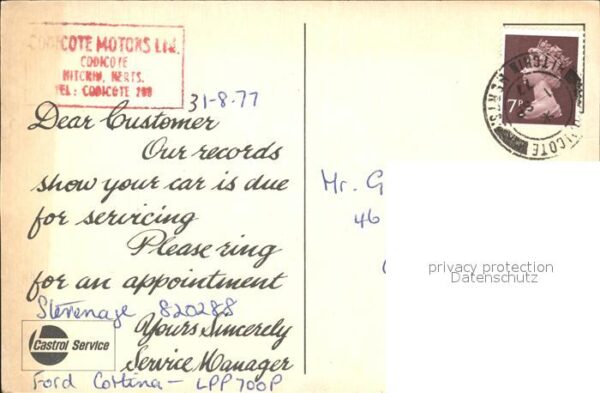 CODICOTE MOTORS LTD.
CODICOTE
HITCHIN, HERTS.
TEL: CODICOTE
31-8-77
Dear Customer
Our records
show your car is due
for servicing
Please ring
for an appointment
Stevenage 820288
Yours Sincerely
Service Manager
Castrol Service
Ford Cortina - LPP 700P
7P
HITCHIN HERTS.
CODICOTE
Mr. G
46
privacy protection
Datenschutz